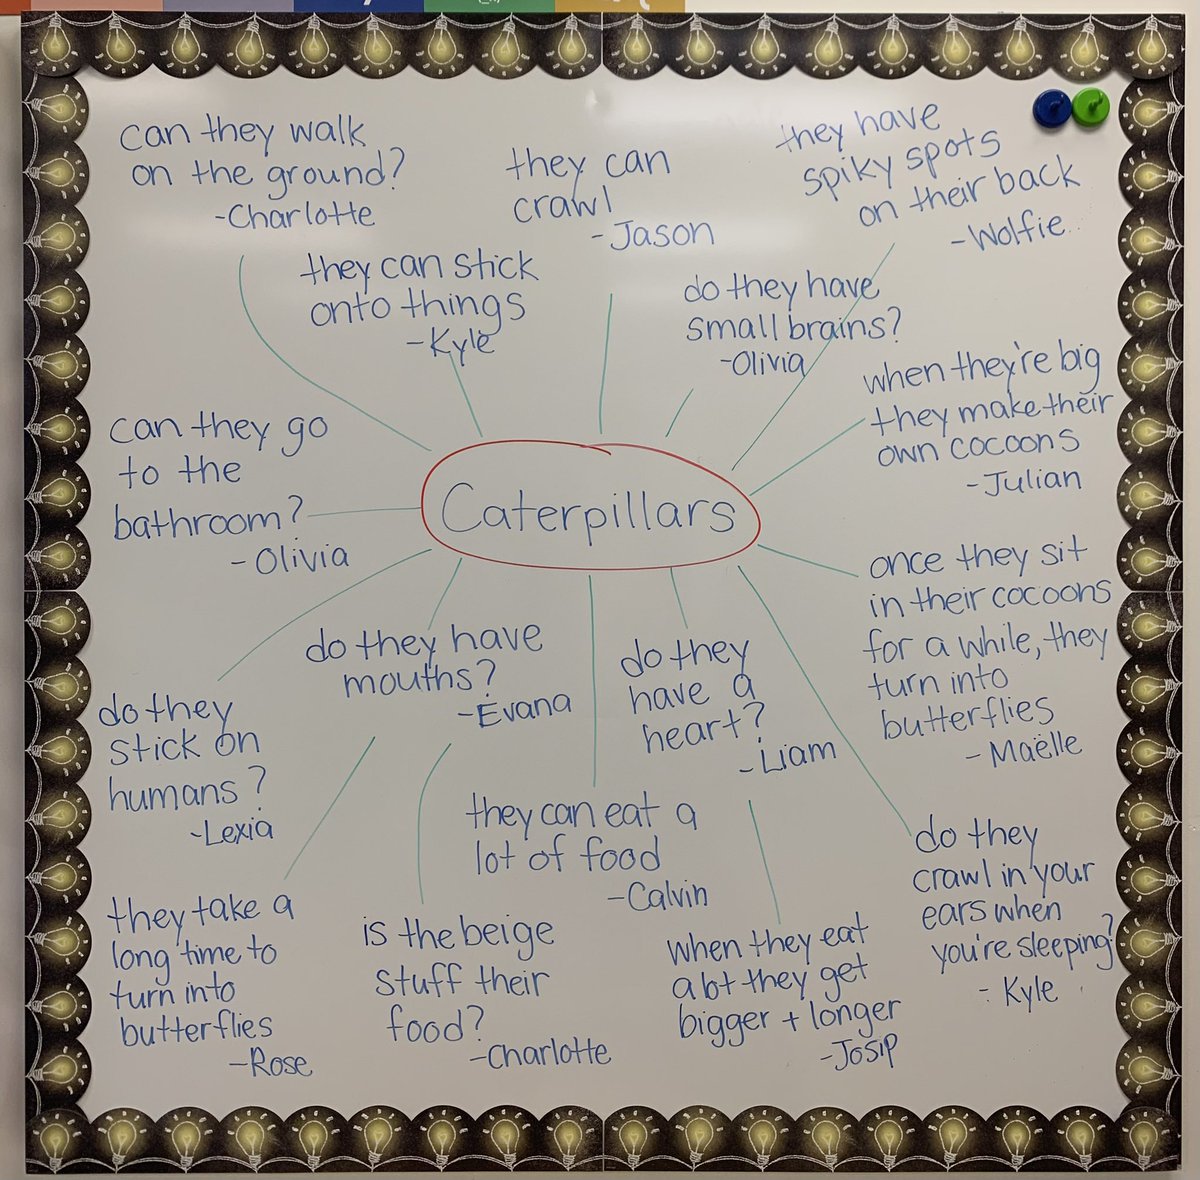 can they walk
on the ground?
-Charlotte
they can
crawl
-Jason
they have
spiky spots
on their back
-Wolfie
they can stick
onto things
-Kyle
do they have
small brains?
-Olivia
when they're big
they make their
own cocoons
-Julian
can they go
to the
bathroom?
-Olivia
Caterpillars
once they sit
in their cocoons
for a while, they
turn into
butterflies
-Maëlle
do they have
mouths?
-Evana
do they
have a
heart?
-Liam
do they
stick on
humans?
-Lexia
they can eat a
lot of food
-Calvin
do they
crawl in your
ears when
you're sleeping?
-Kyle
they take a
long time to
turn into
butterflies
-Rose
is the beige
stuff their
food?
-Charlotte
when they eat
a lot they get
bigger + longer
-Josip